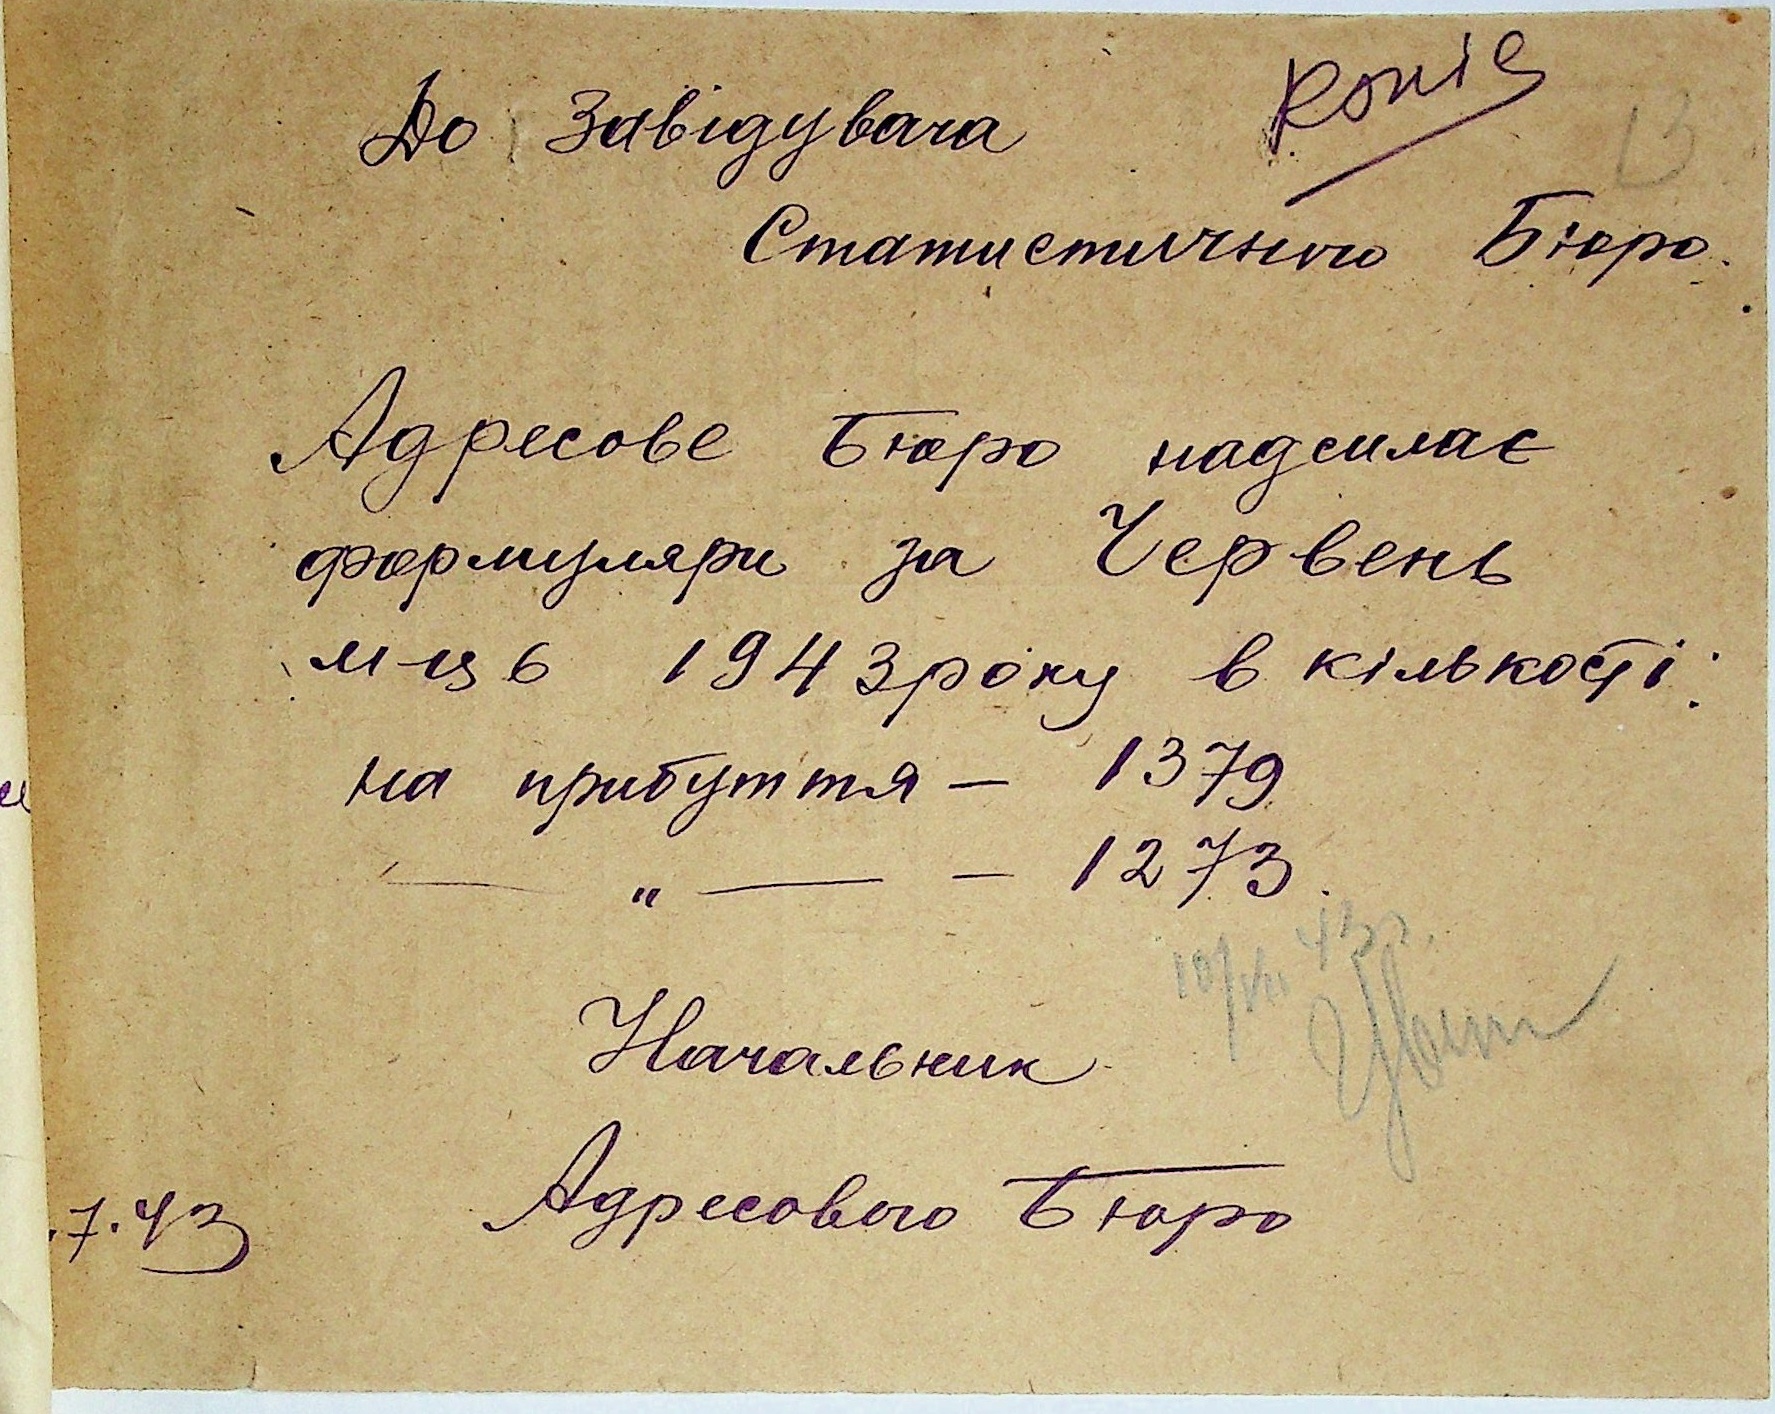 Копія
13
До Завідувача
Статистичного Бюро.
Адресове Бюро надсилає
формуляри за Червень
м-ць 1943 року в кількості:
на прибуття — 1379
— " — — 1273.
10/VII 43 г.
Начальник
Адресового Бюро
.7.43